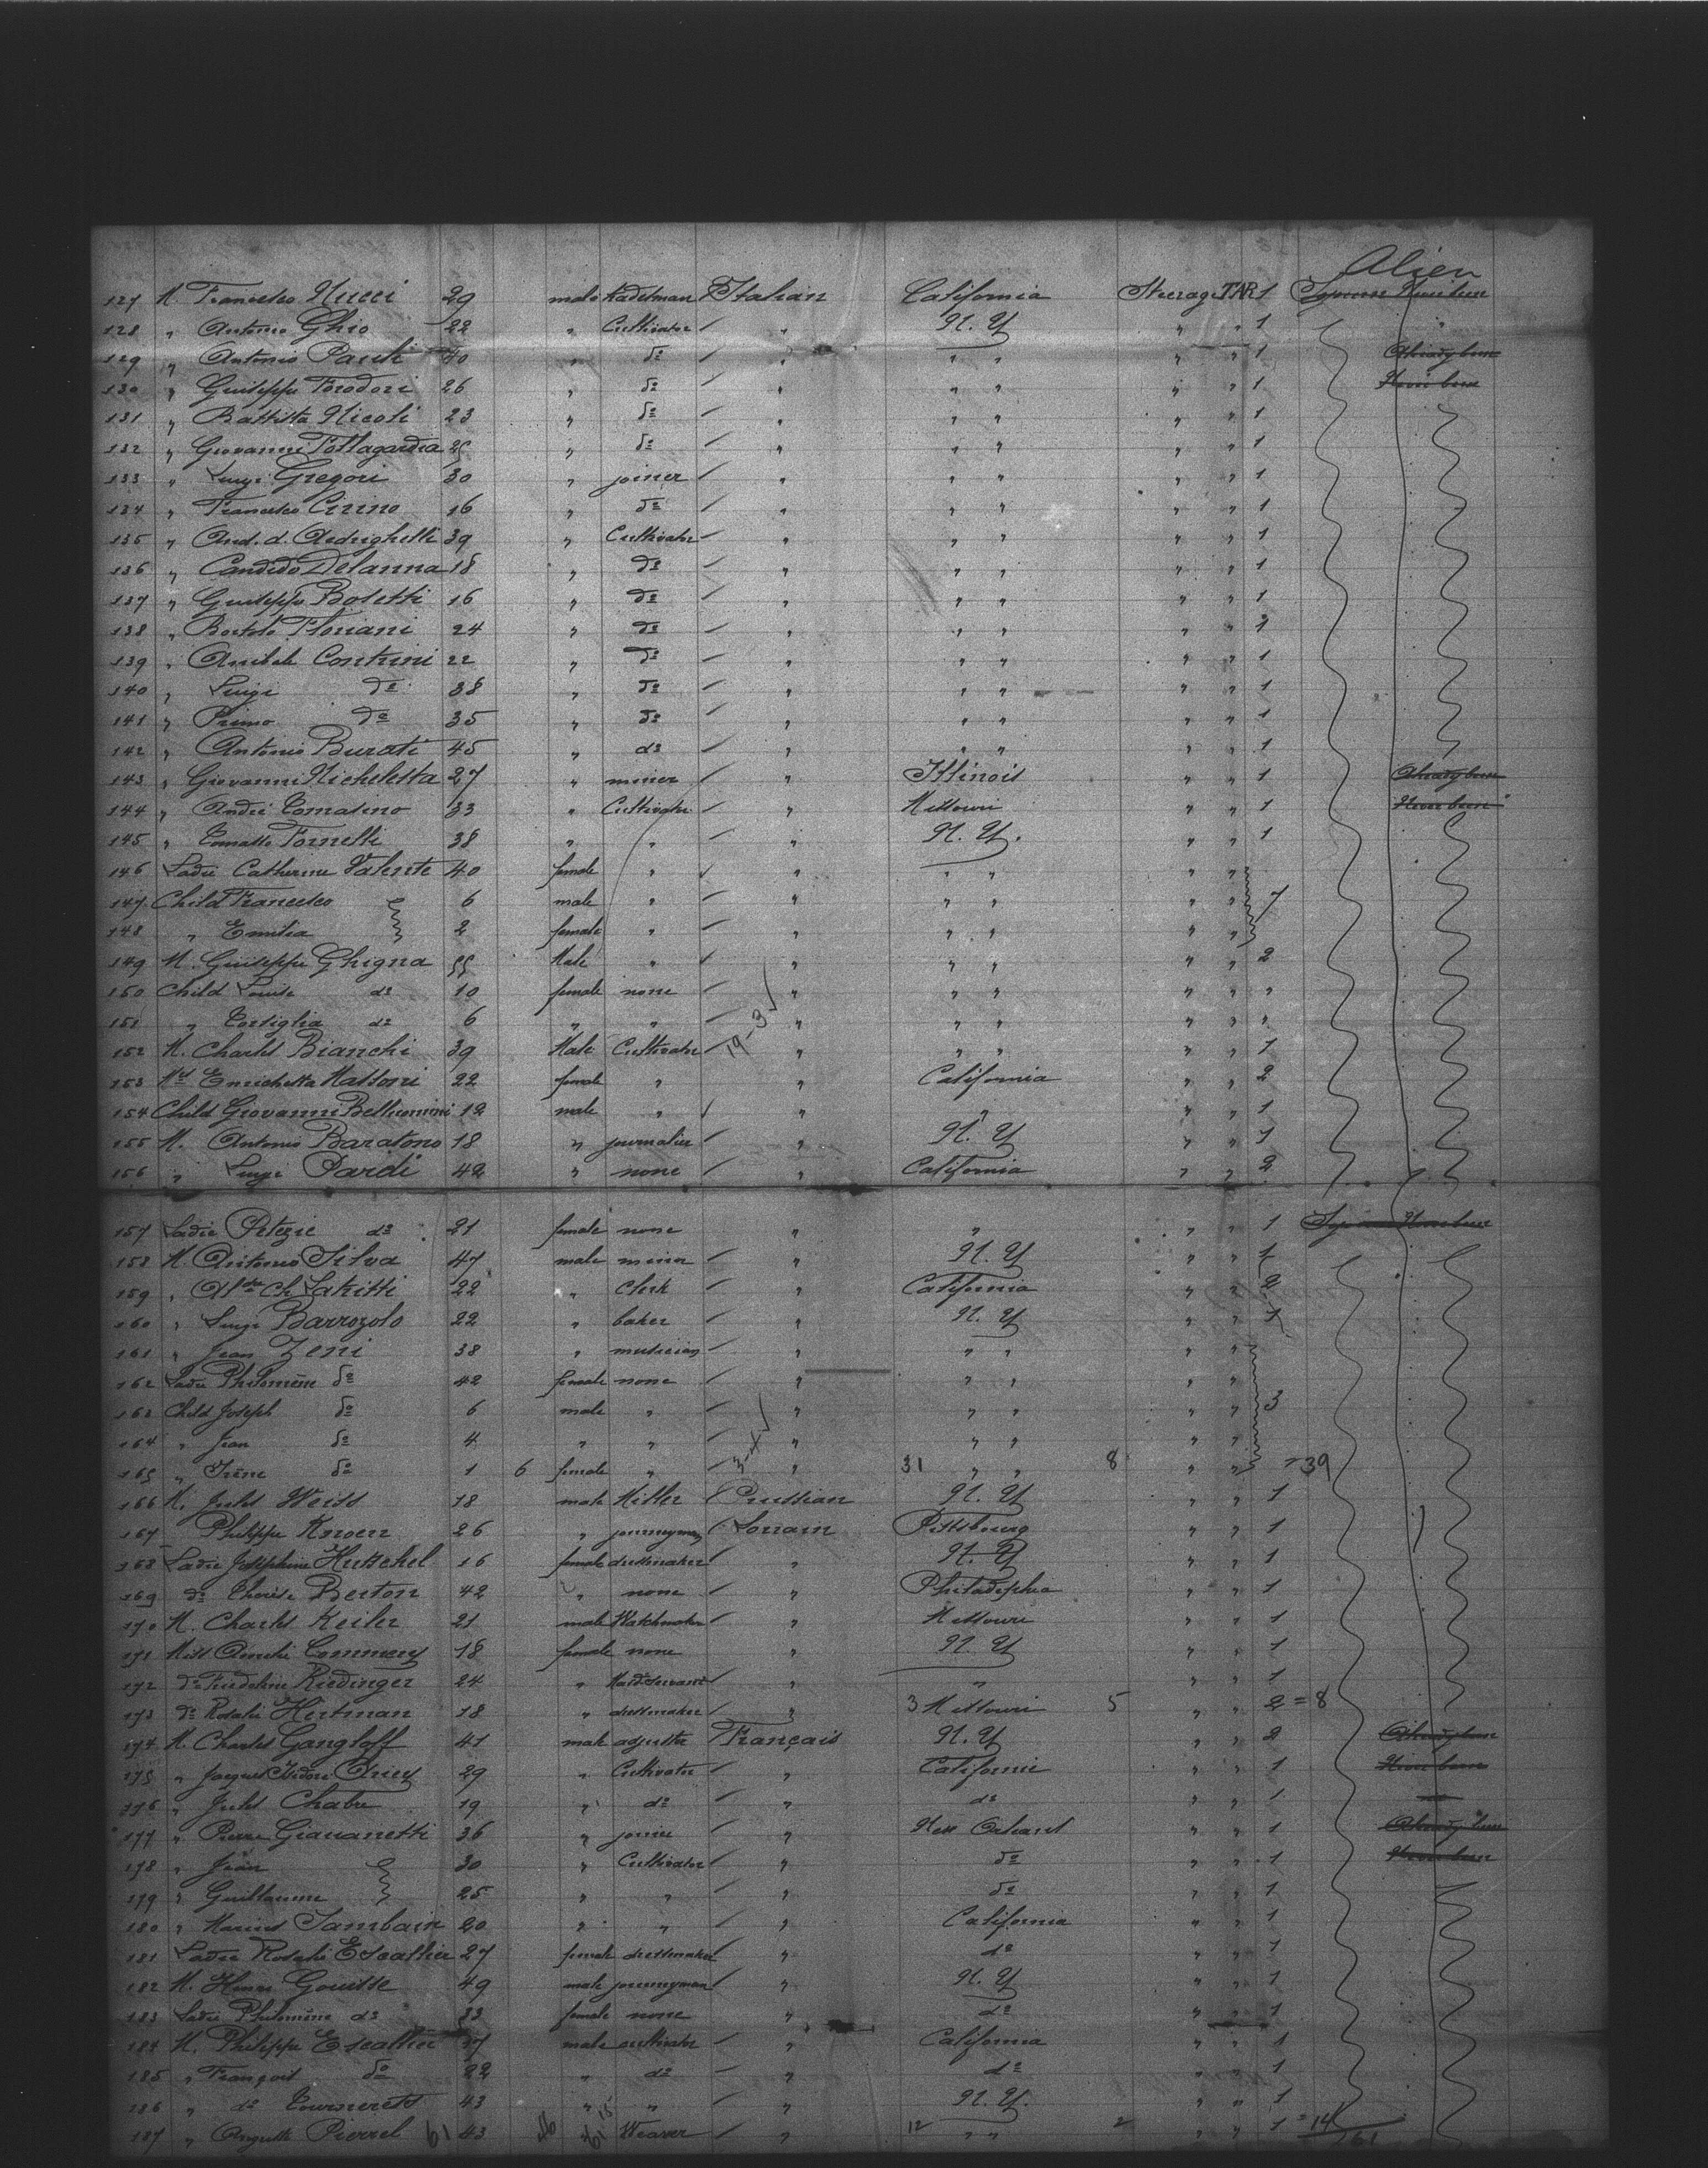 Alien
127 M. Francesco Nucci 29 male tradesman Italian California Steerage TAR 1
128 " Antonio Ghio 22 " Cultivator " N. Y " " 1 "
129 " Antonio 40 " do " " " " " 1 Already been
130 " Giuseppe Forodori 26 " do " " " " " 1 Here been
131 " Battista Nicoli 23 " do " " " " " 1
132 " Giovanni 25 " do " " " " " 1
133 " Luigi Gregori 30 " joiner " " " " " 1
134 " Francesco Cirino 16 " do " " " " " 1
135 " And. d. Aedrighetti 39 " Cultivator " " " " " 1
136 " Candido Delanna 18 " do " " " " " 1
137 " Giuseppe Bosetti 16 " do " " " " " 1
138 " Bortolo Floriani 24 " do " " " " " 1
139 " Contrini 22 " do " " " " " 1
140 " Luigi do 38 " do " " " " " 1
141 " Primo do 35 " do " " " " " 1
142 " Antonio Burati 45 " do " " " " " 1
143 " Giovanni Micheletta 27 " miner " Illinois " " 1 Already been
144 " André Tomasino 33 " Cultivator " Missouri " " 1 Here been
145 " Fornelli 38 " " " N. Y. " " 1
146 Ladie Catherine Valente 40 female " " " " " "
147 Child Francesco 6 male " " " " " " 7
148 " Emilia 2 female " " " " " "
149 M. Giuseppe Ghigna 55 Male " " " " " " 2
150 Child Louise do 10 female none " " " " " "
151 " Torsiglia do 6 " " " " " " " "
19-3
152 M. Charles Bianchi 39 Male Cultivator " " " " " 1
153 Md Enrichetta Massoni 22 female " " California " " 2
154 Child Giovanni Bellicomini 12 male " " " " " 1
155 M. Antonio Baratono 18 " journalier " N. Y " " 1
156 " Luigi Pardi 42 " none " California " " 2
157 Ladie do 21 female none " " " " 1
158 M. Antonio Silva 47 male miner " N. Y " " 1
159 " Ch 22 " Clerk " California " " 2
160 " Luigi Barrozolo 22 " baker " N. Y " " 1
161 " Jean Zeni 38 " musician " " " " "
162 Ladie Philomène do 42 female none " " " " "
163 Child Joseph do 6 male " " " " " " 3
164 " Jean do 4 " " " " " " "
165 " Irène do 1 6 female " " 31 " " 8 " " =39
166 M. Jules Weiss 18 male Miller Prussian N. Y " " 1
167 Philippe Knoerr 26 " journeyman Lorrain Pittsbourg " " 1
168 Ladie Joséphine Hutschel 16 female dressmaker " N. Y " " 1
169 do Thérèse Berton 42 " none " Philadelphia " " 1
170 M. Charles Keiler 21 male Watchmaker " Missouri " " 1
171 Miss Amélie Commeny 18 female none " N. Y " " 1
172 do Fridoline Riedinger 24 " Maidservant " " " " 1
173 do Rosalie Hertman 18 " dressmaker " 3 Missouri 5 " " 2 = 8
174 M. Charles Gangloff 41 male adjuster Français N. Y " " 2 Already been
175 " Jacques Isidore 29 " Cultivator " California " " 1 Here been
176 " Jules Chabre 19 " do " do " " 1 do
177 " Pierre Giavanetti 36 " joiner " New Orleans " " 1 Already been
178 " Jean 30 " Cultivator " do " " 1 Here been
179 " Guillaume 25 " " " do " " 1
180 " Marius Jambain 20 " " " California " " 1
181 Ladie Rosalie Escallier 27 female dressmaker " do " " 1
182 M. Henri Gouisse 49 male journeyman " N. Y " " 1
183 Ladie Philomène do 33 female none " do " " 1
184 M. Philippe Escallier male cultivator " California " " 1
185 " François do 22 " do " do " " 1
186 " do Tournerets 43 " " " N. Y. " " 1
187 " Auguste Pierrel 61 43 46 61 15 Weaver " 12 " " 2 " " 1 = 14
61